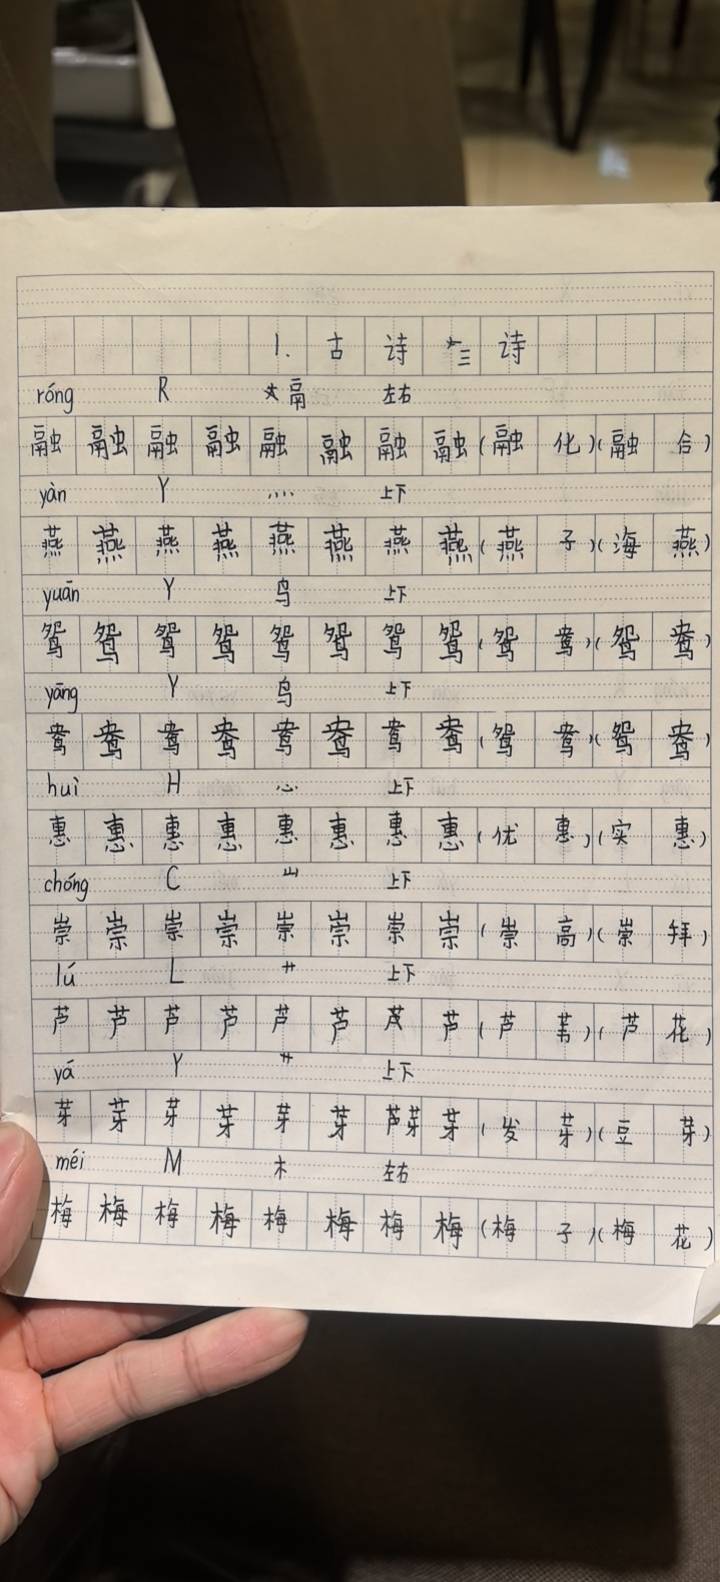 1. 古诗三诗
róng R 鬲 左右
融融融融融融融融(融化)(融合)
yàn Y 灬 上下
燕燕燕燕燕燕燕燕(燕子)(海燕)
yuān Y 鸟 上下
鸳鸳鸳鸳鸳鸳鸳鸳(鸳鸯)(鸳鸯)
yāng Y 鸟 上下
鸯鸯鸯鸯鸯鸯鸯鸯(鸳鸯)(鸳鸯)
huì H 心 上下
惠惠惠惠惠惠惠惠(优惠)(实惠)
chóng C 山 上下
崇崇崇崇崇崇崇崇(崇高)(崇拜)
lú L 艹 上下
芦芦芦芦芦芦芦(芦苇)(芦花)
yá Y 艹 上下
芽芽芽芽芽芽芦芽芽(发芽)(豆芽)
méi M 木 左右
梅梅梅梅梅梅梅梅(梅子)(梅花)